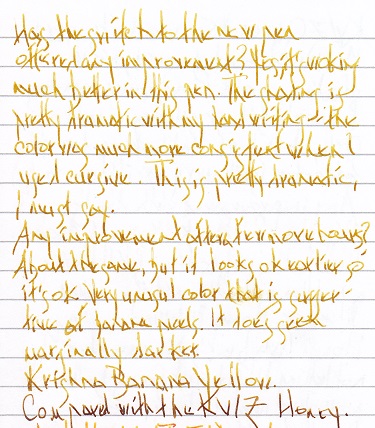 Has the switch to the new pen
offered any improvement? Yes it's working
much better in this pen. The shading is
pretty dramatic with my handwriting - the
color was much more consistent when I
used cursive. This is pretty dramatic,
I must say.
Any improvement after a few more hours?
About the same, but it looks ok earlier so
it's ok. Very unusual color that is sugges-
tive of banana peels. It does seem
marginally darker.
Krishna Banana Yellow.
Compared with the KWZ Honey.